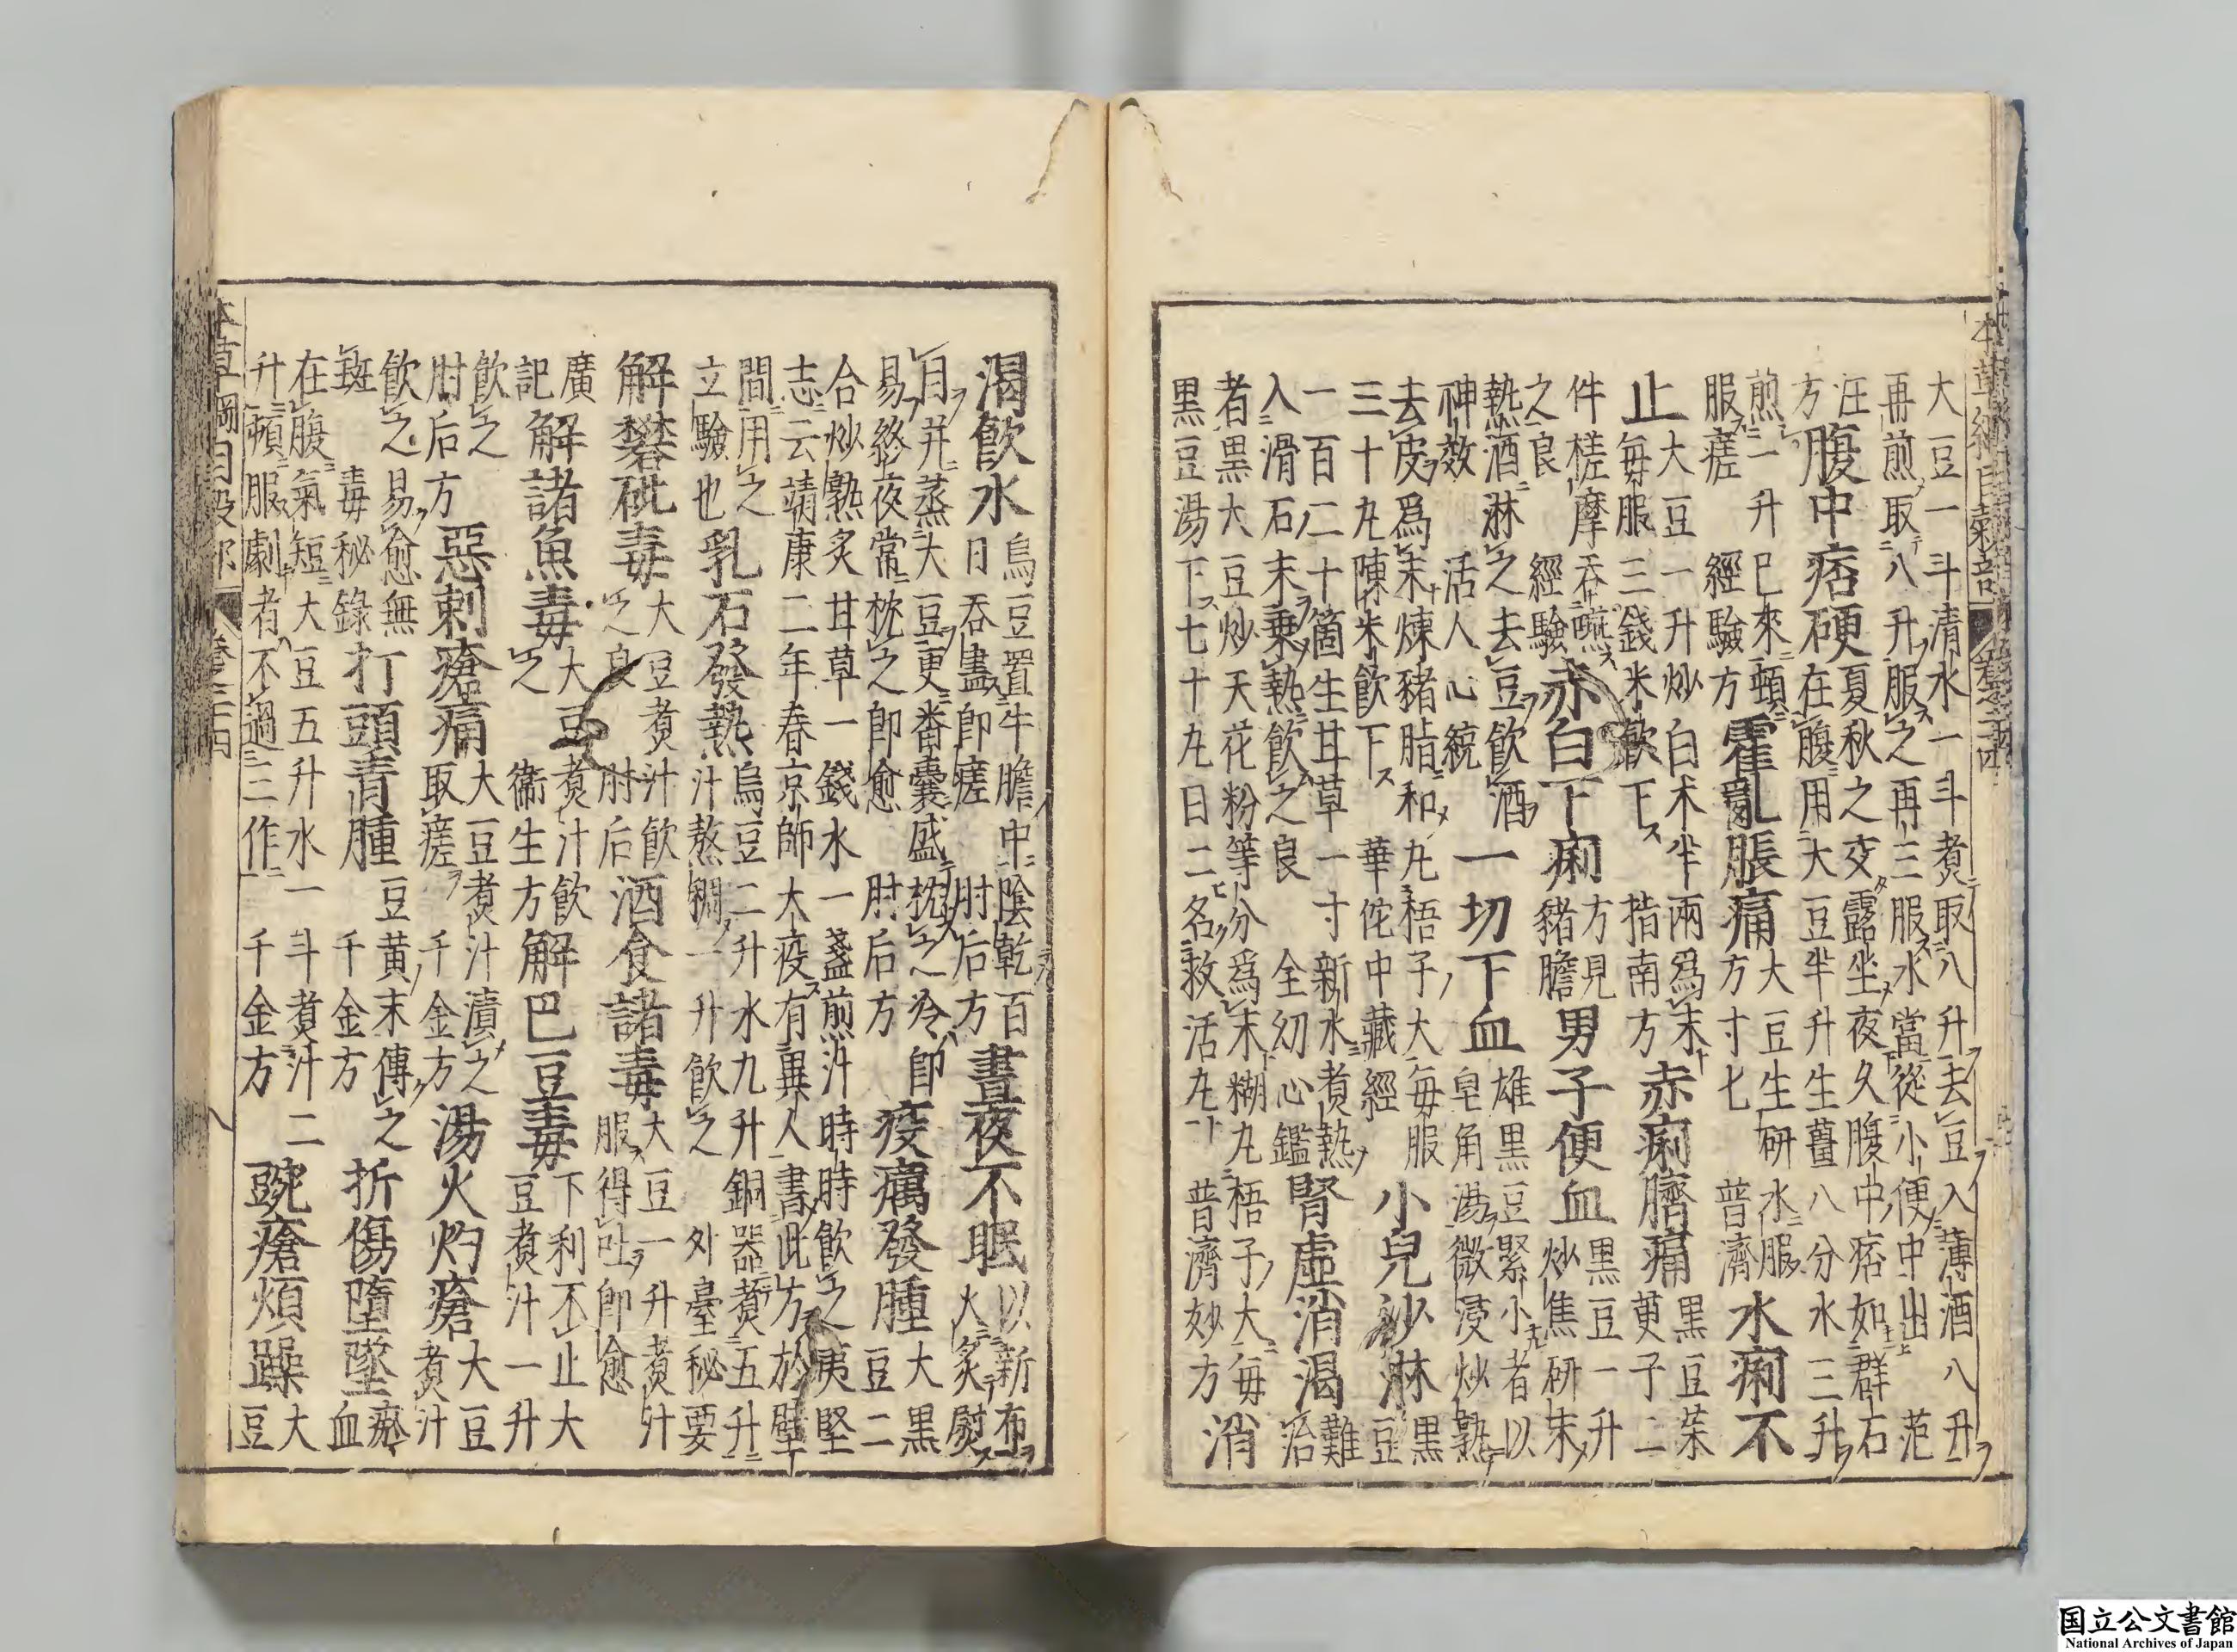 本草綱目穀部 卷之二十四
大豆一斗清水一斗煮取八升去豆入薄酒八升再煎取八升服之再三服水當從小便中出 范
汪方 腹中痞硬 夏秋之交露坐夜久腹中痞如群石在腹用大豆半升生薑八分水三升
煎一升巳來頓服瘥 經驗方 霍亂脹痛 大豆生研水服方寸匕 普濟 水痢不
止 大豆一升炒白朮半兩爲末每服三錢米飲下 指南方 赤痢臍痛 黑豆茱萸子二
件槎摩吞嚥之良 經驗 赤白下痢 方見豬膽 男子便血 黑豆一升炒焦研末
熱酒淋之去豆飲酒神效 活人心統 一切下血 雄黑豆緊小者以皂角湯微浸炒熟
去皮爲末煉豬脂和丸梧子大每服三十丸陳米飲下 華佗中藏經 小兒沙淋 黑豆
一百二十箇生甘草一寸新水煮熱入滑石末乘熱飲之良 全幼心鑑 腎虛消渴 難治
者黑大豆炒天花粉等分爲末糊丸梧子大每黑豆湯下七十丸日二名救活丸 普濟妙方 消
渴飲水 烏豆置牛膽中陰乾百日吞盡即瘥 肘后方 晝夜不眠 以新布火炙熨
目并蒸大豆更番囊盛枕之冷即易終夜常枕之即愈 肘后方 疫癘發腫 大黑豆二
合炒熟炙甘草一錢水一盞煎汁時時飲之夷堅志云靖康二年春京師大疫有異人書此方於壁
間用之立驗也 乳石發熱 烏豆二升水九升銅器煮五升汁熬稠一升飲之 外臺秘要
解礬砒毒 大豆煮汁飲之良 肘后 酒食諸毒 大豆一升煮汁服得吐即愈
廣記 解諸魚毒 大豆煮汁飲之 衞生方 解巴豆毒 下利不止大豆煮汁一升
飲之 肘后方 惡刺瘡痛 大豆煮汁漬之取瘥 千金方 湯火灼瘡 大豆煮汁
飲之易愈無斑 毒秘錄 打頭青腫 豆黃末傅之 千金方 折傷墮墜 瘀血
在腹氣短大豆五升水一斗煮汁二升頓服劇者不過三作 千金方 豌瘡煩躁 大豆
本草綱目穀部 卷之二十四
国立公文書館
National Archives of Japan